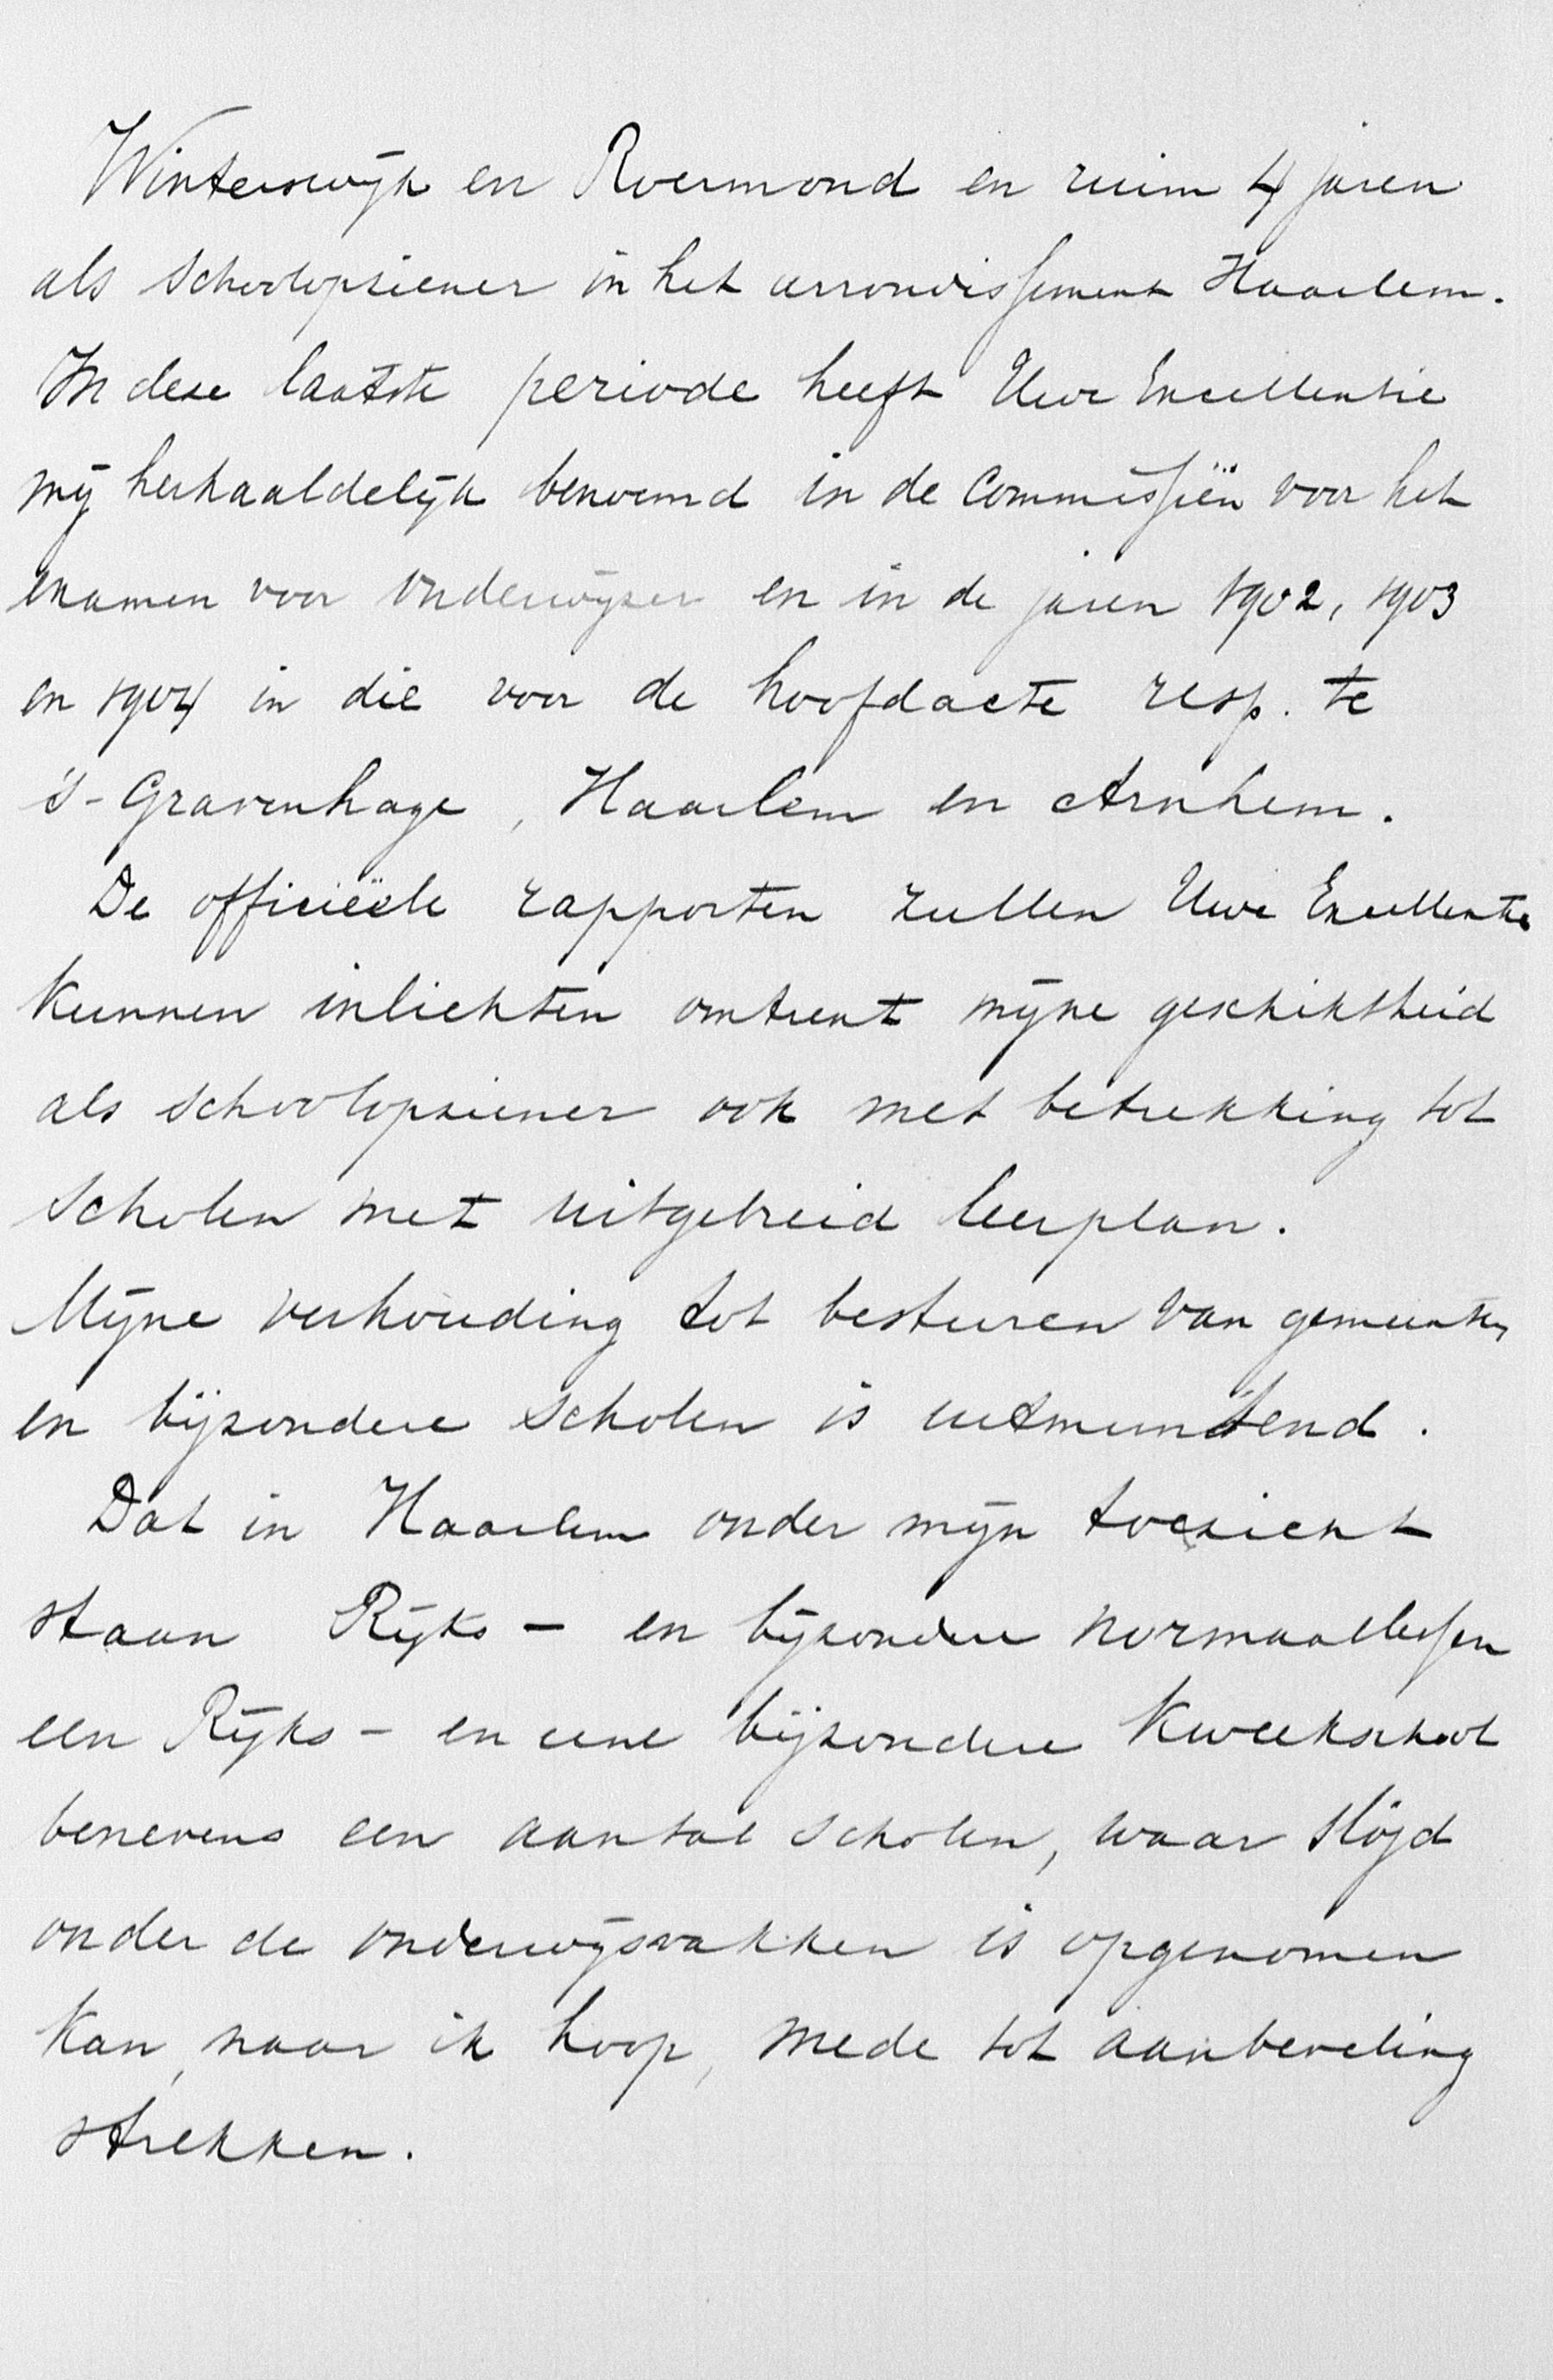 Winterswijk en Roermond en ruim 4 jaren
als schoolopziener in het arrondissement Haarlem.
In deze laatste periode heeft Uwe Excellentie
mij herhaaldelijk benoemd in de Commissiën voor het
examen voor onderwijzer en in de jaren 1902, 1903
en 1904 in die voor de hoofdacte resp. te
's-Gravenhage, Haarlem en Arnhem.
De officiëele rapporten zullen Uwe Excellentie
kunnen inlichten omtrent mijne geschiktheid
als schoolopziener ook met betrekking tot
scholen met uitgebreid leerplan.
Mijne verhouding tot besturen van gemeenten
en bijzondere scholen is uitmuntend.
Dat in Haarlem onder mijn toezicht
staan Rijks- en bijzondere normaallessen
een Rijks- en eene bijzondere kweekschool
benevens een aantal scholen, waar slöjd
onder de onderwijsvakken is opgenomen
kan, naar ik hoop, mede tot aanbeveling
strekken.